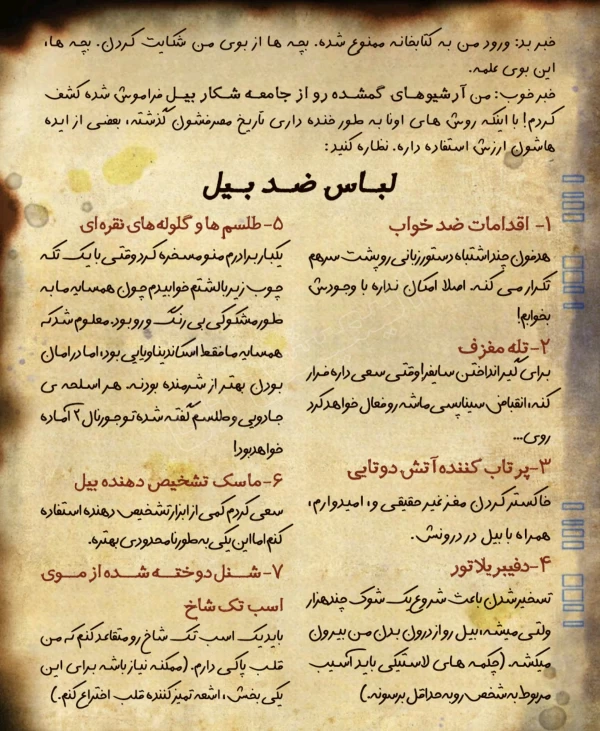 خبر بد: ورود من به کتابخانه ممنوع شده. بچه ها از بوی من شکایت کردن. بچه ها،
این بوی علمه.
خبر خوب: من آرشیوهای گمشده رو از جامعه شکار بیل فراموش شده کشف
کردم! با اینکه روش های اونا به طور خنده داری تاریخ مصرفشون گذشته، بعضی از ایده
هاشون ارزش استفاده داره. نظاره کنید:
لباس ضد بیل
۱- اقدامات ضد خواب
هدفون چند اشتباه دستور زبانی رو پشت سر هم
تکرار می کنه. اصلا امکان نداره با وجودش
بخوابم!
۲- تله مغزف
برای گیر انداختن سایفر! وقتی سعی داره فرار
کنه، انقباض سیناپسی ماشه رو فعال خواهد کرد
روی...
۳-پرتاب کننده آتش دوتایی
خاکستر کردن مغز غیر حقیقی و، امیدوارم،
همراه با بیل در درونش.
۴-دفیبریلاتور
تسخیر شدن باعث شروع یک شوک چند هزار
ولتی میشه، بیل رو از درون بدن من بیرون
میکشه. (چکمه های لاستیکی باید آسیب
مربوط به شخص رو به حداقل برسونه.)
۵- طلسم ها و گلوله های نقره ای
یکبار برادرم منو مسخره کرد وقتی با یک تکه
چوب زیر بالشتم خوابیدم چون همسایه ما به
طور مشکوکی بی رنگ و رو بود. معلوم شد که
همسایه ما فقط اسکاندیناویایی بود، اما در امان
بودن بهتر از شرمنده بودنه. هر اسلحه ی
جادویی و طلسم گفته شده تو جورنال ۲ آماده
خواهد بود!
۶-ماسک تشخیص دهنده بیل
سعی کردم کمی از ابزار تشخیص دهنده استفاده
کنم اما این یکی به طور نامحدودی بهتره.
۷- شنل دوخته شده از موی
اسب تک شاخ
باید یک اسب تک شاخ رو متقاعد کنم که من
قلب پاکی دارم. (ممکنه نیاز باشه برای این
یکی بخش، اشعه تمیز کننده قلب اختراع کنم.)